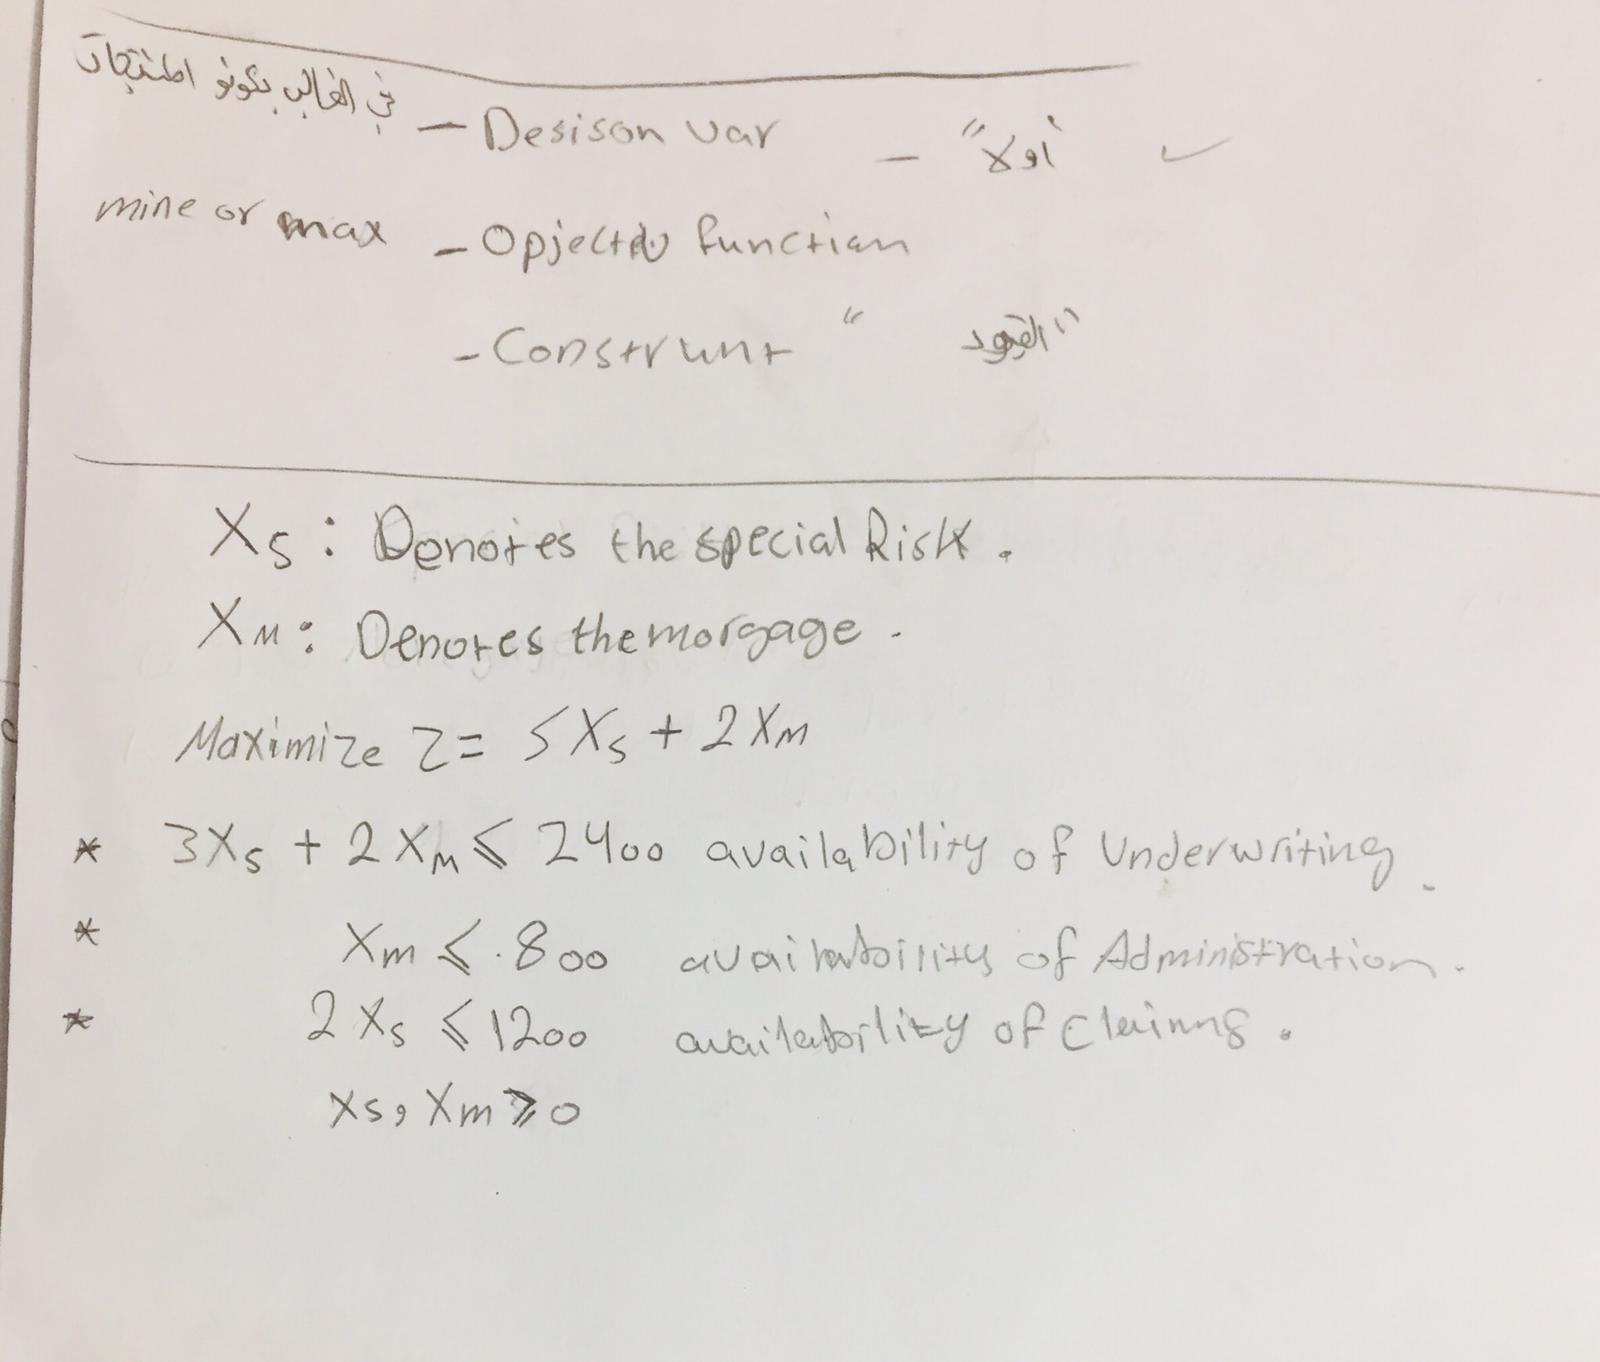 في الغالب بكونو المنتجات – Desison var – "أولاً"
mine or max – Opjectiv function
– Construnt " القيود "
Xs : Denotes the special Risk .
XM : Denotes the morgage .
Maximize Z = 5Xs + 2XM
* 3Xs + 2XM ≤ 2400 availability of Underwriting .
* Xm ≤ 800 availability of Administration .
* 2Xs ≤ 1200 availability of Claims .
Xs, Xm ≥ 0